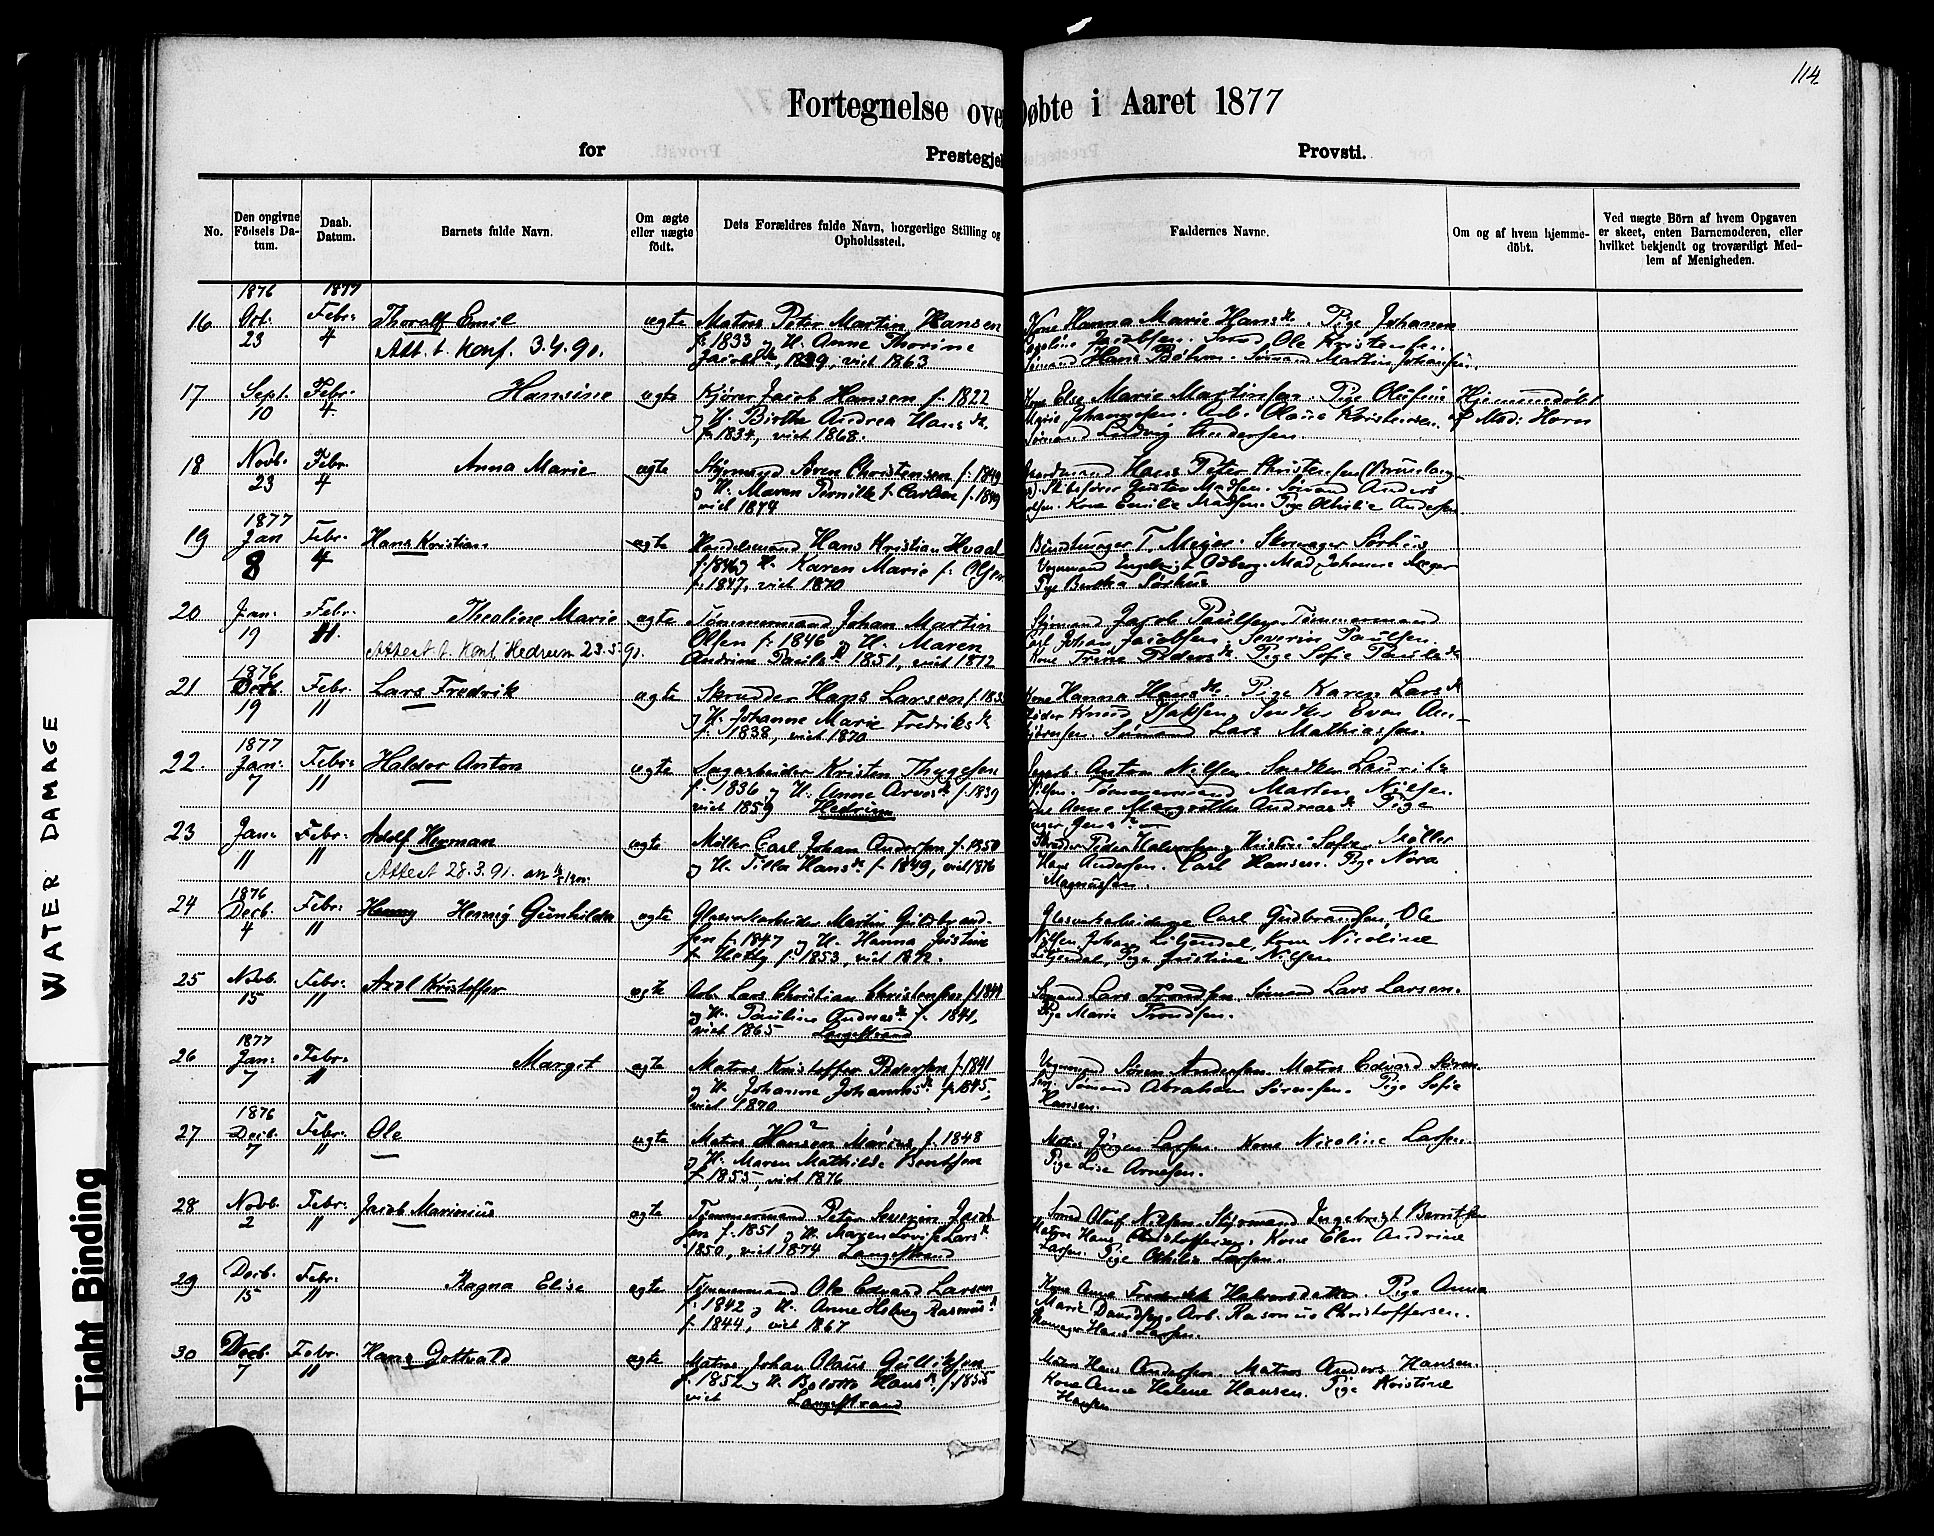 114
Fortegnelse over Døbte i Aaret 1877
for Prestegjel Provsti.
No.
Den opgivne Födsels Da-tum.
Daab. Datum.
Barnets fulde Navn.
Om ægte eller uægte födt.
Dets Forældres fulde Navn, borgerlige Stilling og Opholdssted.
Faddernes Navne.
Om og af hvem hjemme-döbt.
Ved uægte Börn af hvem Opgaven er skeet, enten Barnemoderen, eller hvilket bekjendt og troværdigt Med-lem af Menigheden.
1876 1877
16 Oct. Febr. Thoralf Emil ægte Matros Peter Martin Hansen Kone Hanna Marie Hansdr. Pige Johanne
23 4 Att. t. Konf. 3.4.90. f. 1833 og H. Anne Thorine Jacobsen. Smed Ole Kristensen.
Jacobsdr, 1839, viet 1863 Sømand Hans Bøhm. Sømand Martin Johansen.
17 Sept. Febr. Hansine ægte Kjører Jacob Hansen f. 1822 Kone Else Marie Martinsen. Pige Olufine Hjemmedøbt
10 4 og H. Birthe Andrea Hansdr. Marie Johannesen. Arb. Olaus Kristensen. af Mad: Horn
f. 1834, viet 1868. Sømand Ludvig Andersen.
18 Novb. Febr. Anna Marie ægte Styrmand Søren Christensen f. 1849 Hans Peter Christensen (Brunlag-
23 4 og H. Maren Pernille f. Carlsen f. 1849 Skibsfører Gustav Madsen. Sømand Anders
viet 1874 Olsen. Kone Emilie Madsen. Pige Othilie Andersen
1877
19 Jan Febr. Hans Kristian ægte Handelsmand Hans Kristian Hvaal Buntmager T. Meyer. Skomager Sørhus
8 4 f. 1846 og H. Karen Marie f. Olsen Vognmand Ingebrigt Odberg. Mad. Johanne Meyer
f. 1847, viet 1870 Pige Bertha Sørhus
20 Jan. Febr. Theoline Marie ægte Tømmermand Johan Martin Styrmand Jacob Paulsen. Tømmermand
19 11. Attest t. Konf Hedrum 23.5.90. Olsen f. 1846 og H. Maren Carl Johan Jacobsen. Severin Paulsen.
Andrine Paulsdr 1851, viet 1872 Kone Trine Pedersdr. Pige Sofie Paulsdr
1876
21 Decb. Febr. Lars Fredrik ægte Skrædder Hans Larsen Kone Hanna Hansdr. Pige Karen Larsdr
19 11 og H. Johanne Marie Fredriksdr Knud Isaksen. Snedker Even An-
f. 1838, viet 1870 Sømand Lars Mathiassen.
1877
22. Jan. Febr. Haldor Anton ægte Sagarbeider Kristen Thygesen Sagarb. Anton Nilsen. Snedker Laurits
7 11 f. 1836 og H. Anne Arvesdr f. 1839 Nilsen. Tømmermand Martin Nilsen.
viet 1859 Hedrum Anne Margrethe Andreasdr Pige
23 Jan. Febr. Adolf Herman ægte Møller Carl Johan Andersen f. 1850 Peder Halvorsen og Hustru Sofie. Møller
11 11 Attest 28.3.91. og H. Tilla Hansdr f. 1849, viet 1876 Hans Andersen. Carl Hansen. Pige Nora
Magnussen.
1876
24 Decb. Febr. Henny Gunhilda ægte Glasværkarbeider Martin Guldbrand- Glasværkarbeiderne Carl Gudbrandsen, Ole
4 11 sen f. 1847 og H. Hanna Justine Nilsen, Johan Liljendal, Kone Nicoline
f. 1853, viet Liljendal, Pige Justine Nilsen
25 Novb. Febr. Axel Kristoffer ægte Arb. Lars Christian Christensen f. 1844 Sømand Lars Trondsen. Sømand Lars Larsen.
15 11 og H. Pauline Andreasdr f. 1841, Pige Marie Trondsen.
viet 1865 Langestrand
1877
26 Jan. Febr. Margit ægte Matros Kristoffer Pedersen f. 1841 Vognmand Søren Andersen. Matros Edvard Sören-
7 11 og H. Johanne Johannesdr f. 1845, sen. Sømand Abraham Sørensen. Pige Sofie
viet 1870 Hansen.
1876
27 Decb. Febr. Ole ægte Matros Hansen Marius f. 1848 Matros Jørgen Larsen. Kone Nicoline Larsen.
7 11 og H. Maren Mathilde Berntsen Pige Lise Arnesen.
f. 1855, viet 1876
28 Novb. Febr. Jacob Marinius ægte Tømmermand Peter Severin Jacob- Smed Oluf Nilsen. Styrmand Ingebrigt Berntsen
2 11 sen f. 1851 og H. Maren Lovise Larsdr Matros Hans Christoffersen. Kone Elen Andrine
1850, viet 1874 Langestrand Larsen. Pige Othilie Larsen.
29 Decb. Febr. Ragna Elise ægte Tømmermand Ole Edvard Larsen Kone Anne Frederikke Halvorsdatter. Pige Anna
15 11 f. 1842 og H. Anne Helvig Rasmusdr Marie Davidsen. Arb. Rasmus Christoffersen.
f. 1844, viet 1867 Skomager Hans Larsen.
30 Decb. Febr. Hans Gottvald ægte Matros Johan Olaus Gulliksen Matros Hans Andersen. Matros Anders Hansen.
7 11 f. 1852 og H. Hansdr. f. 1855 Kone Anne Helene Hansen. Pige Kristine
viet Langestrand Hansen
WATER DAMAGE
Tight Binding